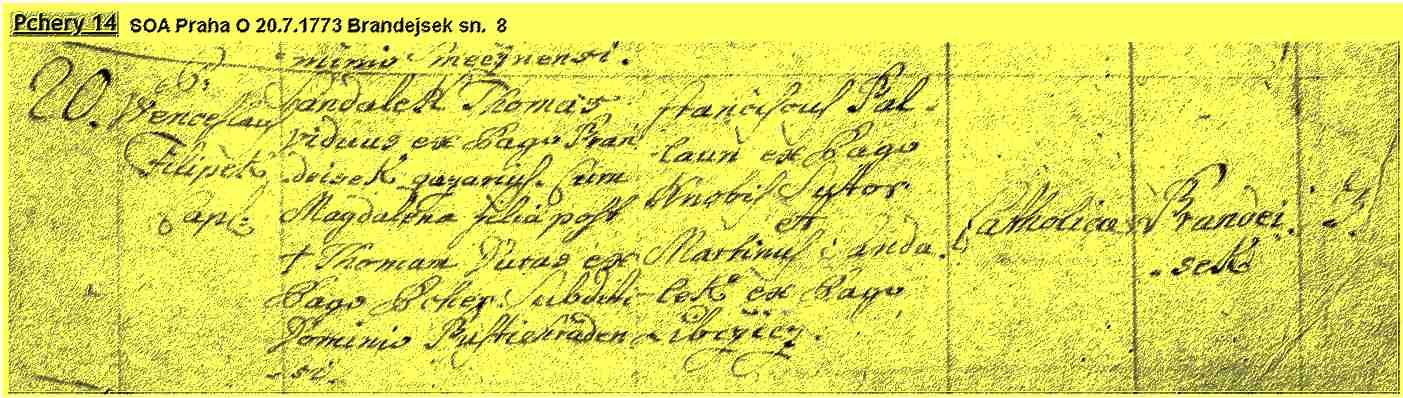 Pchery 14 SOA Praha O 20.7.1773 Brandejsek sn. 8
20.
D.
Wenceslaus
Filipek
Capl:
Thomas
viduus ex Pago Bran
deisek cum
Magdalena filia post
+ Thomam Duras ex
Pago Pcher. Subditi
Dominio
si.
Franciscus Pal
laun ex Pago
Knobis Sutor
et
Martinus Landa
lek ex Pago
Catholica
Brandei
sek
3.